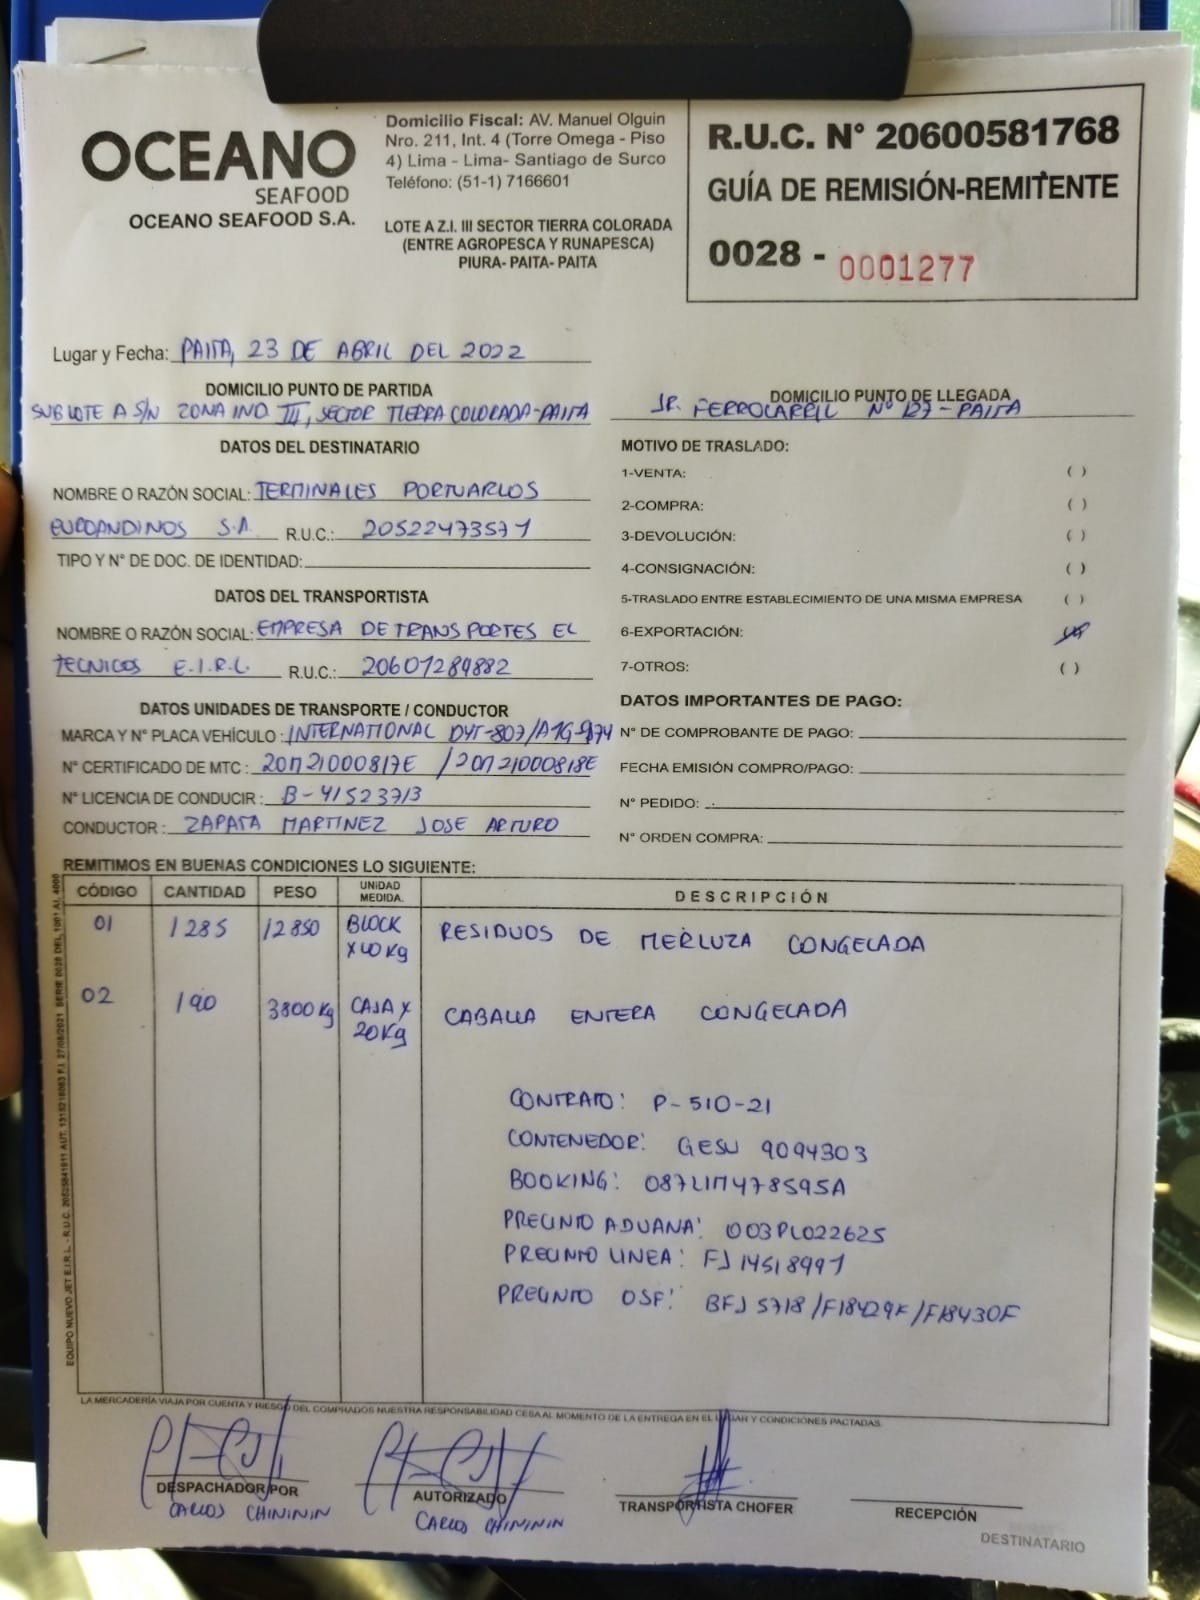 OCEANO
SEAFOOD
OCEANO SEAFOOD S.A.
Domicilio Fiscal: AV. Manuel Olguin
Nro. 211, Int. 4 (Torre Omega - Piso
4) Lima - Lima- Santiago de Surco
Teléfono: (51-1) 7166601
LOTE A Z.I. III SECTOR TIERRA COLORADA
(ENTRE AGROPESCA Y RUNAPESCA)
PIURA- PAITA- PAITA
R.U.C. N° 20600581768
GUÍA DE REMISIÓN-REMITENTE
0028 - 0001277
Lugar y Fecha: PAITA, 23 DE ABRIL DEL 2022
DOMICILIO PUNTO DE PARTIDA
SUB LOTE A S/N ZONA IND III, SECTOR TIERRA COLORADA-PAITA
DOMICILIO PUNTO DE LLEGADA
JR. FERROCARRIL Nº 127-PAITA
DATOS DEL DESTINATARIO
NOMBRE O RAZÓN SOCIAL: TERMINALES PORTUARIOS
EUROANDINOS S.A. R.U.C.: 20522473571
TIPO Y N° DE DOC. DE IDENTIDAD:
DATOS DEL TRANSPORTISTA
NOMBRE O RAZÓN SOCIAL: EMPRESA DE TRANSPORTES EL
TECNICOS E.I.R.L. R.U.C.: 20601284882
DATOS UNIDADES DE TRANSPORTE / CONDUCTOR
MARCA Y N° PLACA VEHÍCULO : INTERNATIONAL
N° CERTIFICADO DE MTC : 20M21000817E / 20M21000818E
N° LICENCIA DE CONDUCIR : B-41523713
CONDUCTOR : ZAPATA MARTINEZ JOSE ARTURO
MOTIVO DE TRASLADO:
1-VENTA: ( )
2-COMPRA: ( )
3-DEVOLUCIÓN: ( )
4-CONSIGNACIÓN: ( )
5-TRASLADO ENTRE ESTABLECIMIENTO DE UNA MISMA EMPRESA ( )
6-EXPORTACIÓN:
7-OTROS: ( )
DATOS IMPORTANTES DE PAGO:
N° DE COMPROBANTE DE PAGO:
FECHA EMISIÓN COMPRO/PAGO:
N° PEDIDO:
N° ORDEN COMPRA:
REMITIMOS EN BUENAS CONDICIONES LO SIGUIENTE:
CÓDIGO CANTIDAD PESO UNIDAD MEDIDA. DESCRIPCIÓN
01 1285 12850 BLOCK RESIDUOS DE MERLUZA CONGELADA
02 190 3800 Kg CAJA X 20 Kg CABALLA ENTERA CONGELADA
CONTRATO: P-510-21
CONTENEDOR: GESU 9094303
BOOKING: 087LIM478595A
PRECINTO ADUANA: 003PL022625
PRECINTO LINEA: FJ14518991
PRECINTO OSF: BFJ 5718 /F18429F/F18430F
LA MERCADERÍA VIAJA POR CUENTA Y RIESGO DEL COMPRADOS NUESTRA RESPONSABILIDAD CESA AL MOMENTO DE LA ENTREGA EN EL LUGAR Y CONDICIONES PACTADAS.
DESPACHADOR POR
CARLOS CHININÍN
AUTORIZADO
CARLOS CHININÍN
TRANSPORTISTA CHOFER
RECEPCIÓN
DESTINATARIO